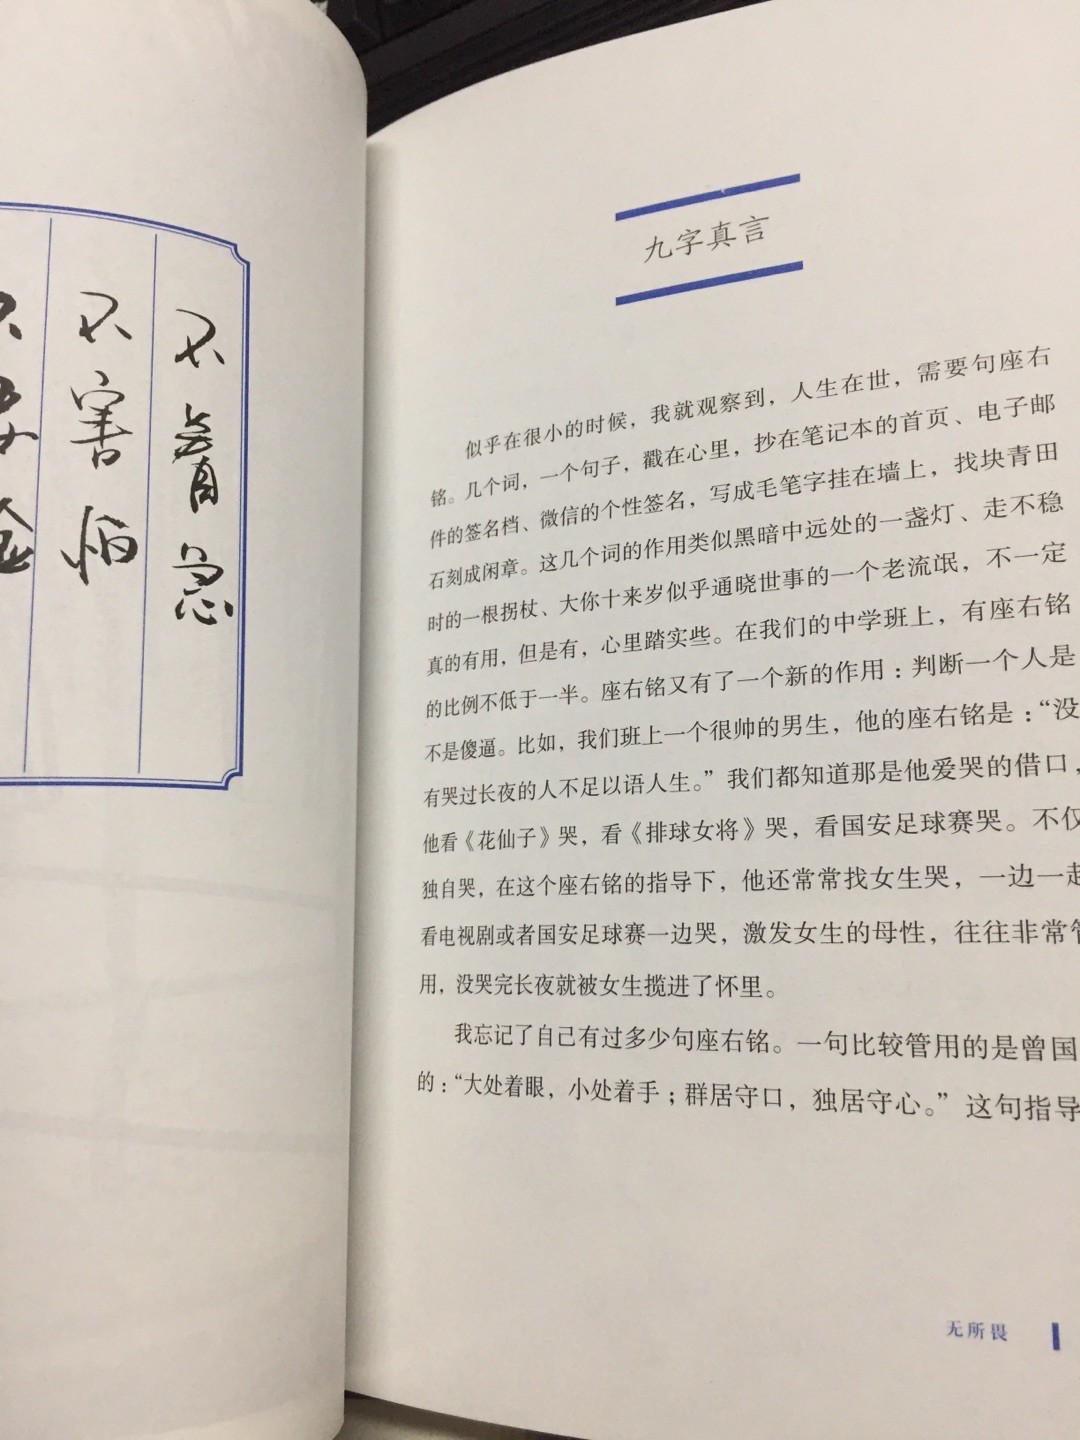 不着急
不害怕
不要脸
九字真言
似乎在很小的时候，我就观察到，人生在世，需要句座右
铭。几个词，一个句子，戳在心里，抄在笔记本的首页、电子邮
件的签名档、微信的个性签名，写成毛笔字挂在墙上，找块青田
石刻成闲章。这几个词的作用类似黑暗中远处的一盏灯、走不稳
时的一根拐杖、大你十来岁似乎通晓世事的一个老流氓，不一定
真的有用，但是有，心里踏实些。在我们的中学班上，有座右铭
的比例不低于一半。座右铭又有了一个新的作用：判断一个人是
不是傻逼。比如，我们班上一个很帅的男生，他的座右铭是：“没
有哭过长夜的人不足以语人生。”我们都知道那是他爱哭的借口，
他看《花仙子》哭，看《排球女将》哭，看国安足球赛哭。不仅
独自哭，在这个座右铭的指导下，他还常常找女生哭，一边一起
看电视剧或者国安足球赛一边哭，激发女生的母性，往往非常管
用，没哭完长夜就被女生揽进了怀里。
我忘记了自己有过多少句座右铭。一句比较管用的是曾国
的：“大处着眼，小处着手；群居守口，独居守心。”这句指导
无所畏